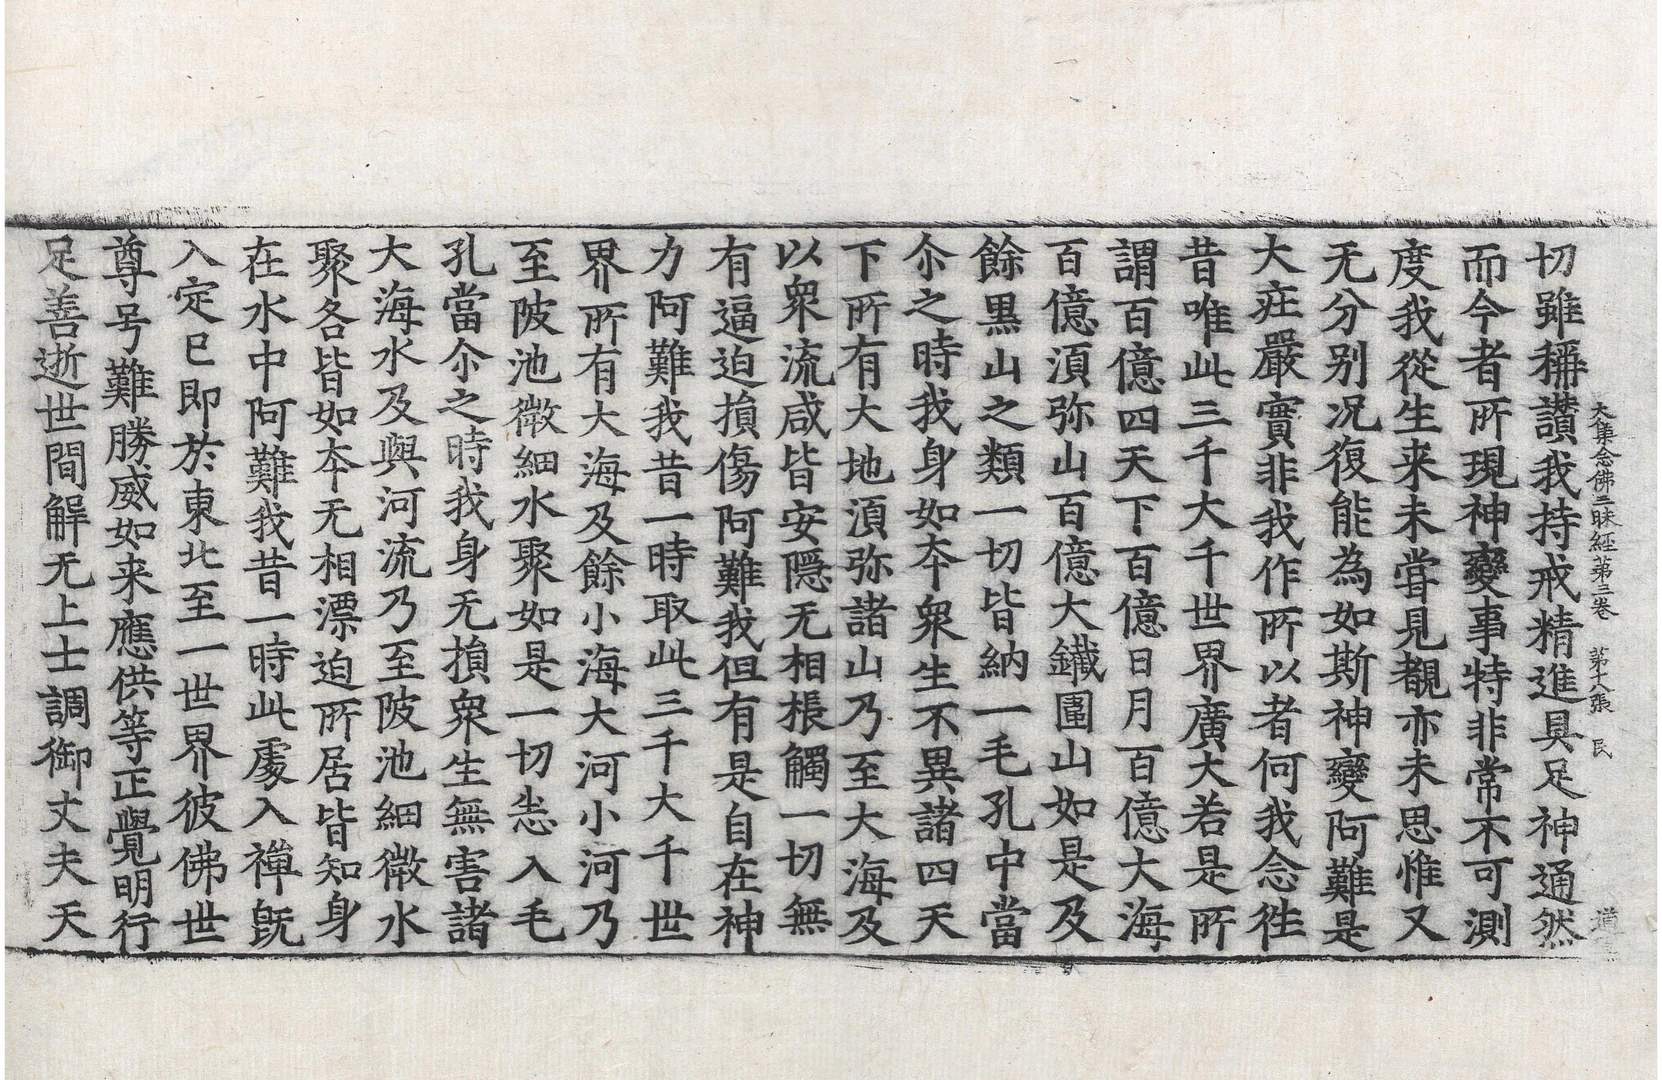 大集念佛三昧經第三卷　第十八張　民
切雖稱讃我持戒精進具足神通然
而今者所現神變事特非常不可測
度我從生来未甞見覩亦未思惟又
无分别况復能為如斯神變阿難是
大疘嚴實非我作所以者何我念徃
昔唯此三千大千世界廣大若是所
謂百億四天下百億日月百億大海
百億湏弥山百億大鐵圍山如是及
餘黒山之類一切皆納一毛孔中當
尒之時我身如夲衆生不異諸四天
下所有大地湏弥諸山乃至大海及
以衆流咸皆安隱无相棖觸一切無
有逼迫損傷阿難我但有是自在神
力阿難我昔一時取此三千大千世
界所有大海及餘小海大河小河乃
至陂池微細水聚如是一切悉入毛
孔當尒之時我身无損衆生無害諸
大海水及與河流乃至陂池細微水
聚各皆如夲无相漂迫所居皆知身
在水中阿難我昔一時此處入禪既
入定已即於東北至一世界彼佛世
尊号難勝威如来應供等正覺明行
足善逝世間解无上士調御丈夫天